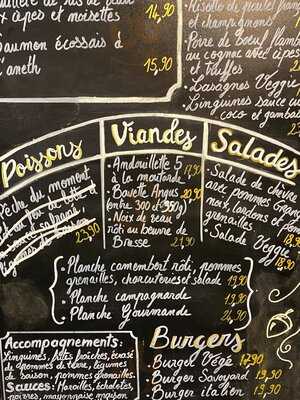 x âpes et noisettes 14,90
aumon écossais à
l'aneth 15,90
Risotto de poulet
et champignons
Poire de Boeuf flamb
au cognac avec âpes
et truffes
Lasagnes Veggie
Linguines sauce
coco et gambas
Poissons
Pêche du moment
23,90
Viandes
- Andouillette 5
à la moutarde 17,90
- Bavette Angus 20,90
(entre 300 et 350g)
- Noix de veau
rôti au beurre de
Bresse 21,90
Salades
- Salade de chèvre
avec pommes
noix, lardons et
grenailles 18,
- Salade Veggie
18,
- Planche camembert rôti, pommes
grenailles, charcuteries et salade 19,90
- Planche campagnarde 19,90
- Planche Gourmande 24,90
Accompagnements:
Linguines, frites fraîches, écrasé
de pommes de terre, légumes
de saison, pommes grenailles.
Sauces: Maroilles, échalotes,
poivres, mayonnaise maison
Burgers
- Burger Végé 17,90
- Burger Savoyard 19,90
- Burger italien 19,90